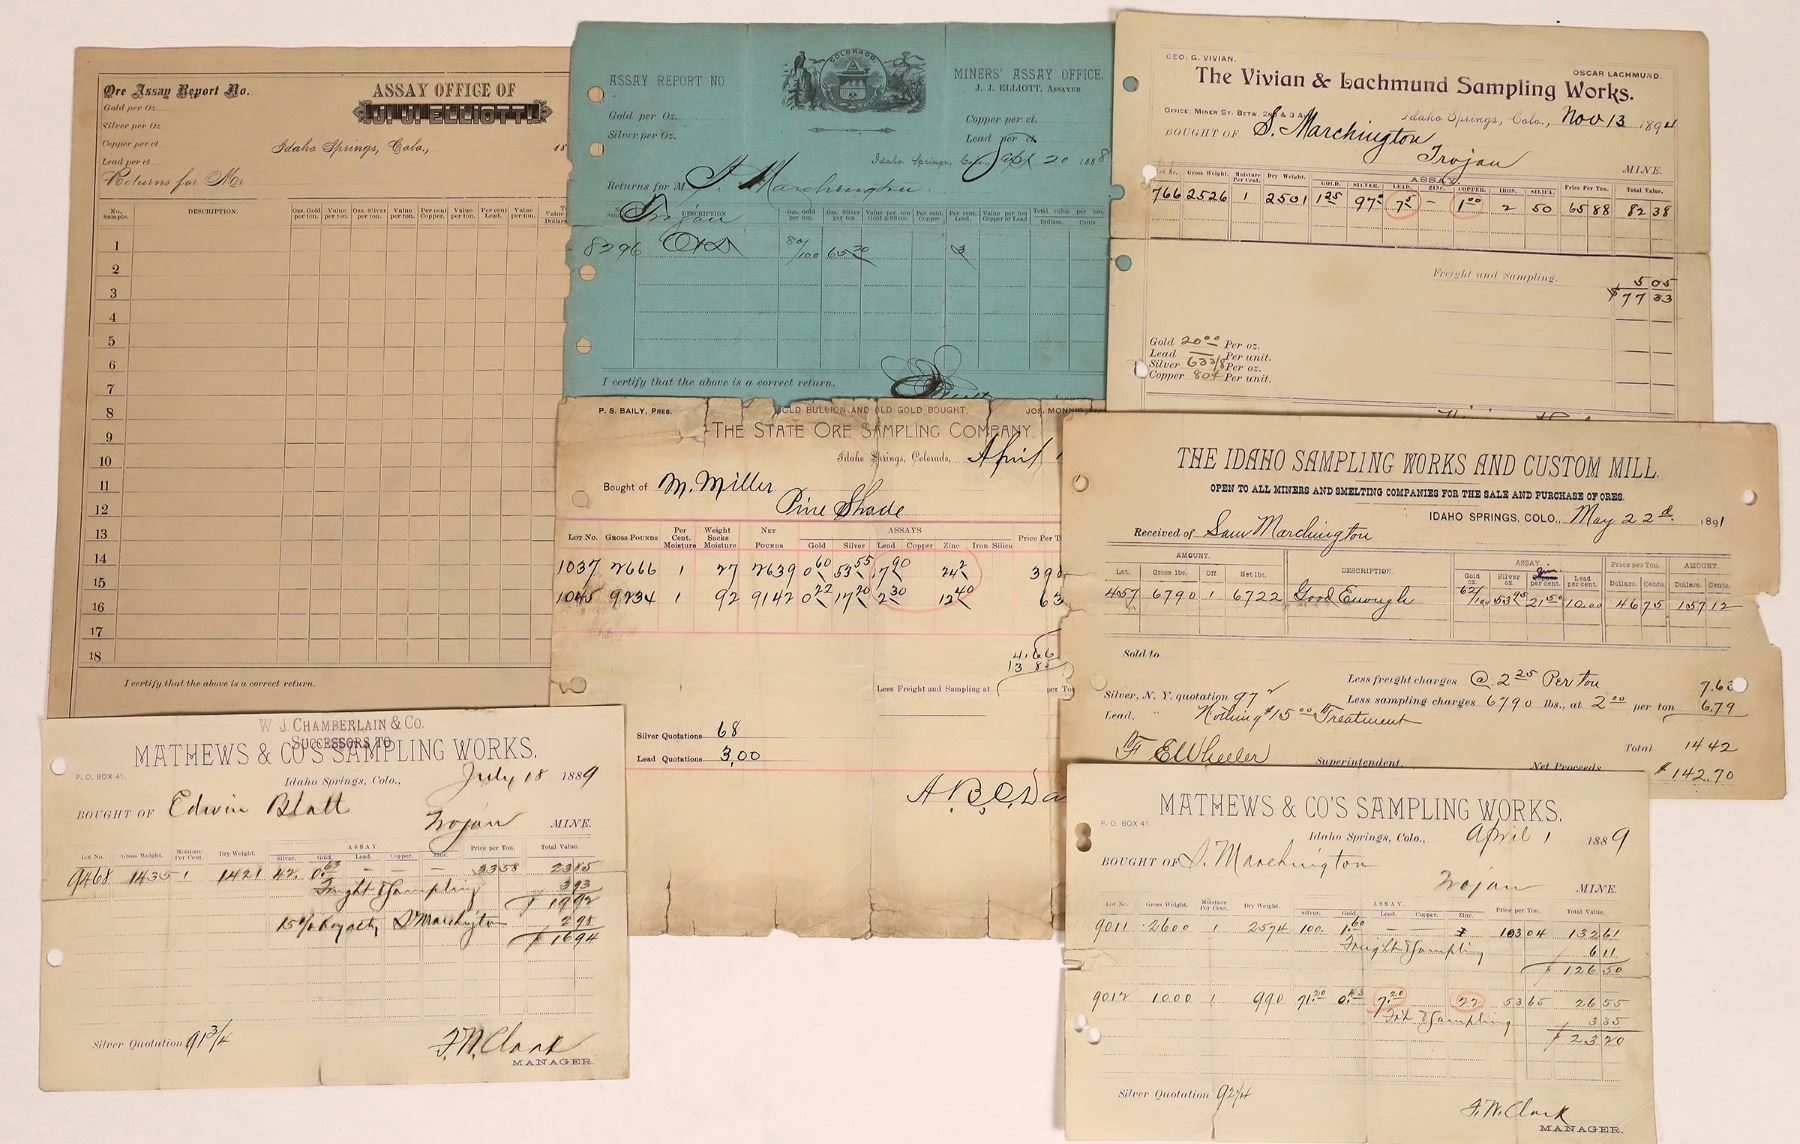 Ore Assay Report No.
ASSAY OFFICE OF
J. J. ELLIOTT.
Gold per Oz.
Silver per Oz
Copper per ct
Lead per ct
Idaho Springs, Colo., 18
Returns for Mr
No. Sample. DESCRIPTION. Ozs. Gold per ton. Value per ton. Ozs. Silver per ton. Value per ton. Per cent Copper. Value per ton. Per cent Lead. Value per ton.
1
2
3
4
5
6
7
8
9
10
11
12
13
14
15
16
17
18
I certify that the above is a correct return.
ASSAY REPORT NO
COLORADO.
MINERS' ASSAY OFFICE.
J. J. ELLIOTT, ASSAYER.
Gold per Oz.
Silver per Oz.
Copper per ct.
Lead per ct.
Idaho Springs, Col. Sept 20 1888
Returns for M S. Marchington.
Trojan
DESCRIPTION Ozs. Gold per ton. Ozs. Silver per ton. Value per ton Gold & Silver. Per cent Copper. Per cent. Lead. Value per ton Copper or Lead Total value per ton. Dollars. Cents.
8296 Ore 80/100 65 20 3
I certify that the above is a correct return.
GEO. G. VIVIAN. OSCAR LACHMUND.
The Vivian & Lachmund Sampling Works.
OFFICE: MINER ST. BETW. 2ND & 3
Idaho Springs, Colo., Nov 13 1894
BOUGHT OF S. Marchington
Trojan MINE.
ASSAY
Lot No. Gross Weight. Moisture Per Cent. Dry Weight. GOLD. SILVER. LEAD. ZINC. COPPER. IRON. SILICA. Price Per Ton. Total Value.
766 2526 1 2501 1 25 97 2 7 5 – 1 00 2 50 65 88 82 38
Freight and Sampling. 5 05
$ 77 33
Gold 20 00 Per oz.
Lead — Per unit.
Silver 63 3/8 Per oz.
Copper 80¢ Per unit.
P. S. BAILY, PRES. GOLD BULLION AND OLD GOLD BOUGHT.
THE STATE ORE SAMPLING COMPANY.
Idaho Springs, Colorado, April 1
Bought of M. Miller
Pine Shade
LOT NO. GROSS POUNDS Per Cent. Moisture Weight Sacks Moisture NET POUNDS ASSAYS Gold Silver Lead Copper Zinc Iron Silica Price Per T
1037 2666 1 27 2639 0 60 53 55 7 90 24 2 390
1045 9234 1 92 9142 0 22 17 20 2 30 12 40 63
4.66
13 85
Less Freight and Sampling at per Ton
Silver Quotations 68
Lead Quotations 3,00
THE IDAHO SAMPLING WORKS AND CUSTOM MILL.
OPEN TO ALL MINERS AND SMELTING COMPANIES FOR THE SALE AND PURCHASE OF ORES.
IDAHO SPRINGS, COLO., May 22d. 1891
Received of Sam Marchington
AMOUNT. DESCRIPTION. ASSAY Price per Ton. AMOUNT.
Lot. Gross lbs. Off. Net lbs. Gold oz. Silver oz. Zin per cent. Lead per cent. Dollars. Cents. Dollars. Cents.
457 6790 1 6722 Good Enough 62/100 53 95 21 50 10.00 46 75 157 12
Sold to
Less freight charges @ 2 25 Per ton 7.63
Silver, N. Y. quotation 97 2 Less sampling charges 6790 lbs., at 2 00 per ton 6.79
Lead. " Nothing $15 00 Treatment
F E Wheeler Superintendent. Total 14 42
Net Proceeds $142.70
W. J. CHAMBERLAIN & CO.
SUCCESSORS TO
MATHEWS & CO'S SAMPLING WORKS.
P. O. BOX 41.
Idaho Springs, Colo., July 18 1889
BOUGHT OF Edwin Blatt
Trojan MINE.
ASSAY.
Lot No. Gross Weight. Moisture Per Cent. Dry Weight. Silver. Gold. Lead. Copper. Zinc. Price per Ton. Total Value.
9468 1435 1 1421 42. 0. 63 – – – 33 58 23 85
Freight & Sampling 3 93
$ 19 92
15% Royalty S Marchington 2 98
$ 16 94
Silver Quotation 91 3/4
F. W. Clark
MANAGER.
MATHEWS & CO'S SAMPLING WORKS.
P. O. BOX 41.
Idaho Springs, Colo., April 1 1889
BOUGHT OF S. Marchington
Trojan MINE.
ASSAY.
Lot No. Gross Weight. Moisture Per Cent. Dry Weight. Silver. Gold. Lead. Copper. Zinc. Price per Ton. Total Value.
9011 2600 1 2574 100. 1. 60 – – 7 103 04 132 61
Freight & Sampling 6 11
$ 126 50
9012 1000 1 990 71. 20 0. 43 7. 20 22 53 65 26 55
Frt & Sampling 3 35
$ 23 20
Silver Quotation 92 1/4
F. W. Clark
MANAGER.